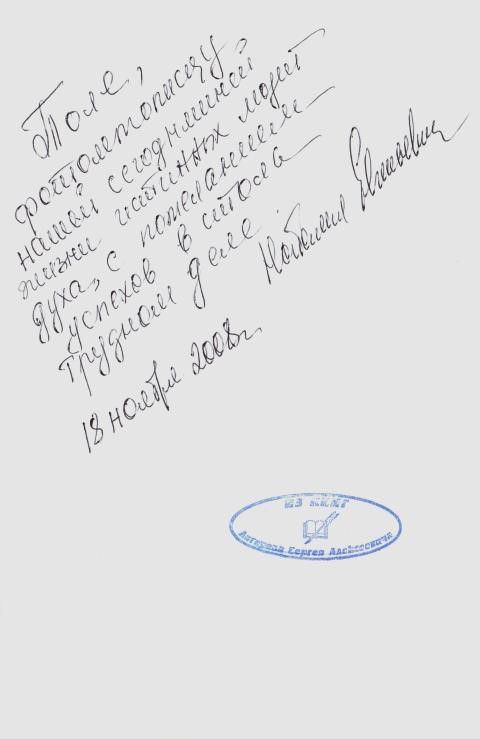 Толе,
фотолетописцу
нашей сегодняшней
жизни истинных людей
духа, с пожеланием
успехов в столь
трудном деле
Наталия
18 ноября 2008г.
ИЗ КНИГ
Сергея Алексеевича